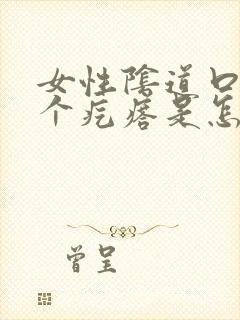 女性阴道口
个疙瘩是怎
曾呈